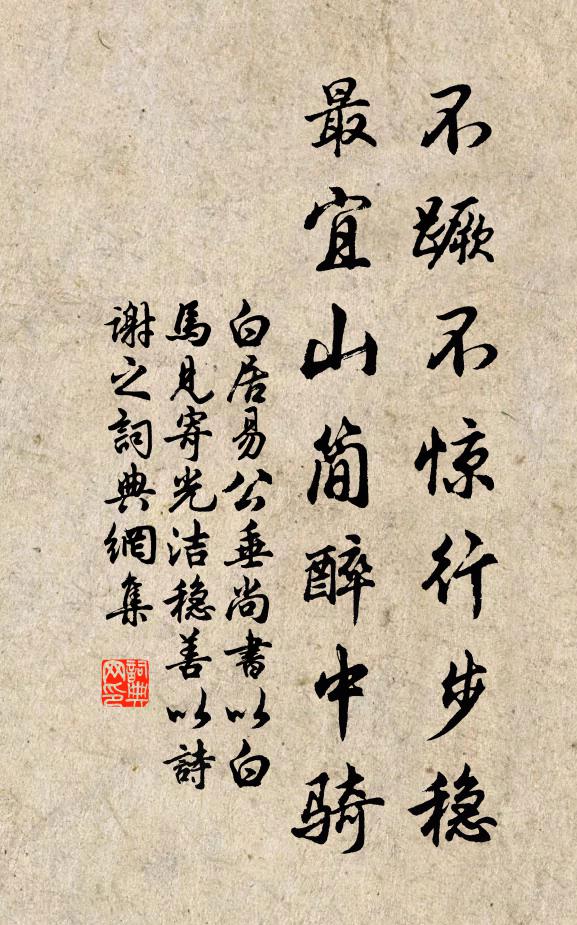 不蹶不惊行步稳
最宜山简醉中骑
白居易公垂尚書以白
馬見寄光洁稳善以詩
谢之詞典網集
詞典网印